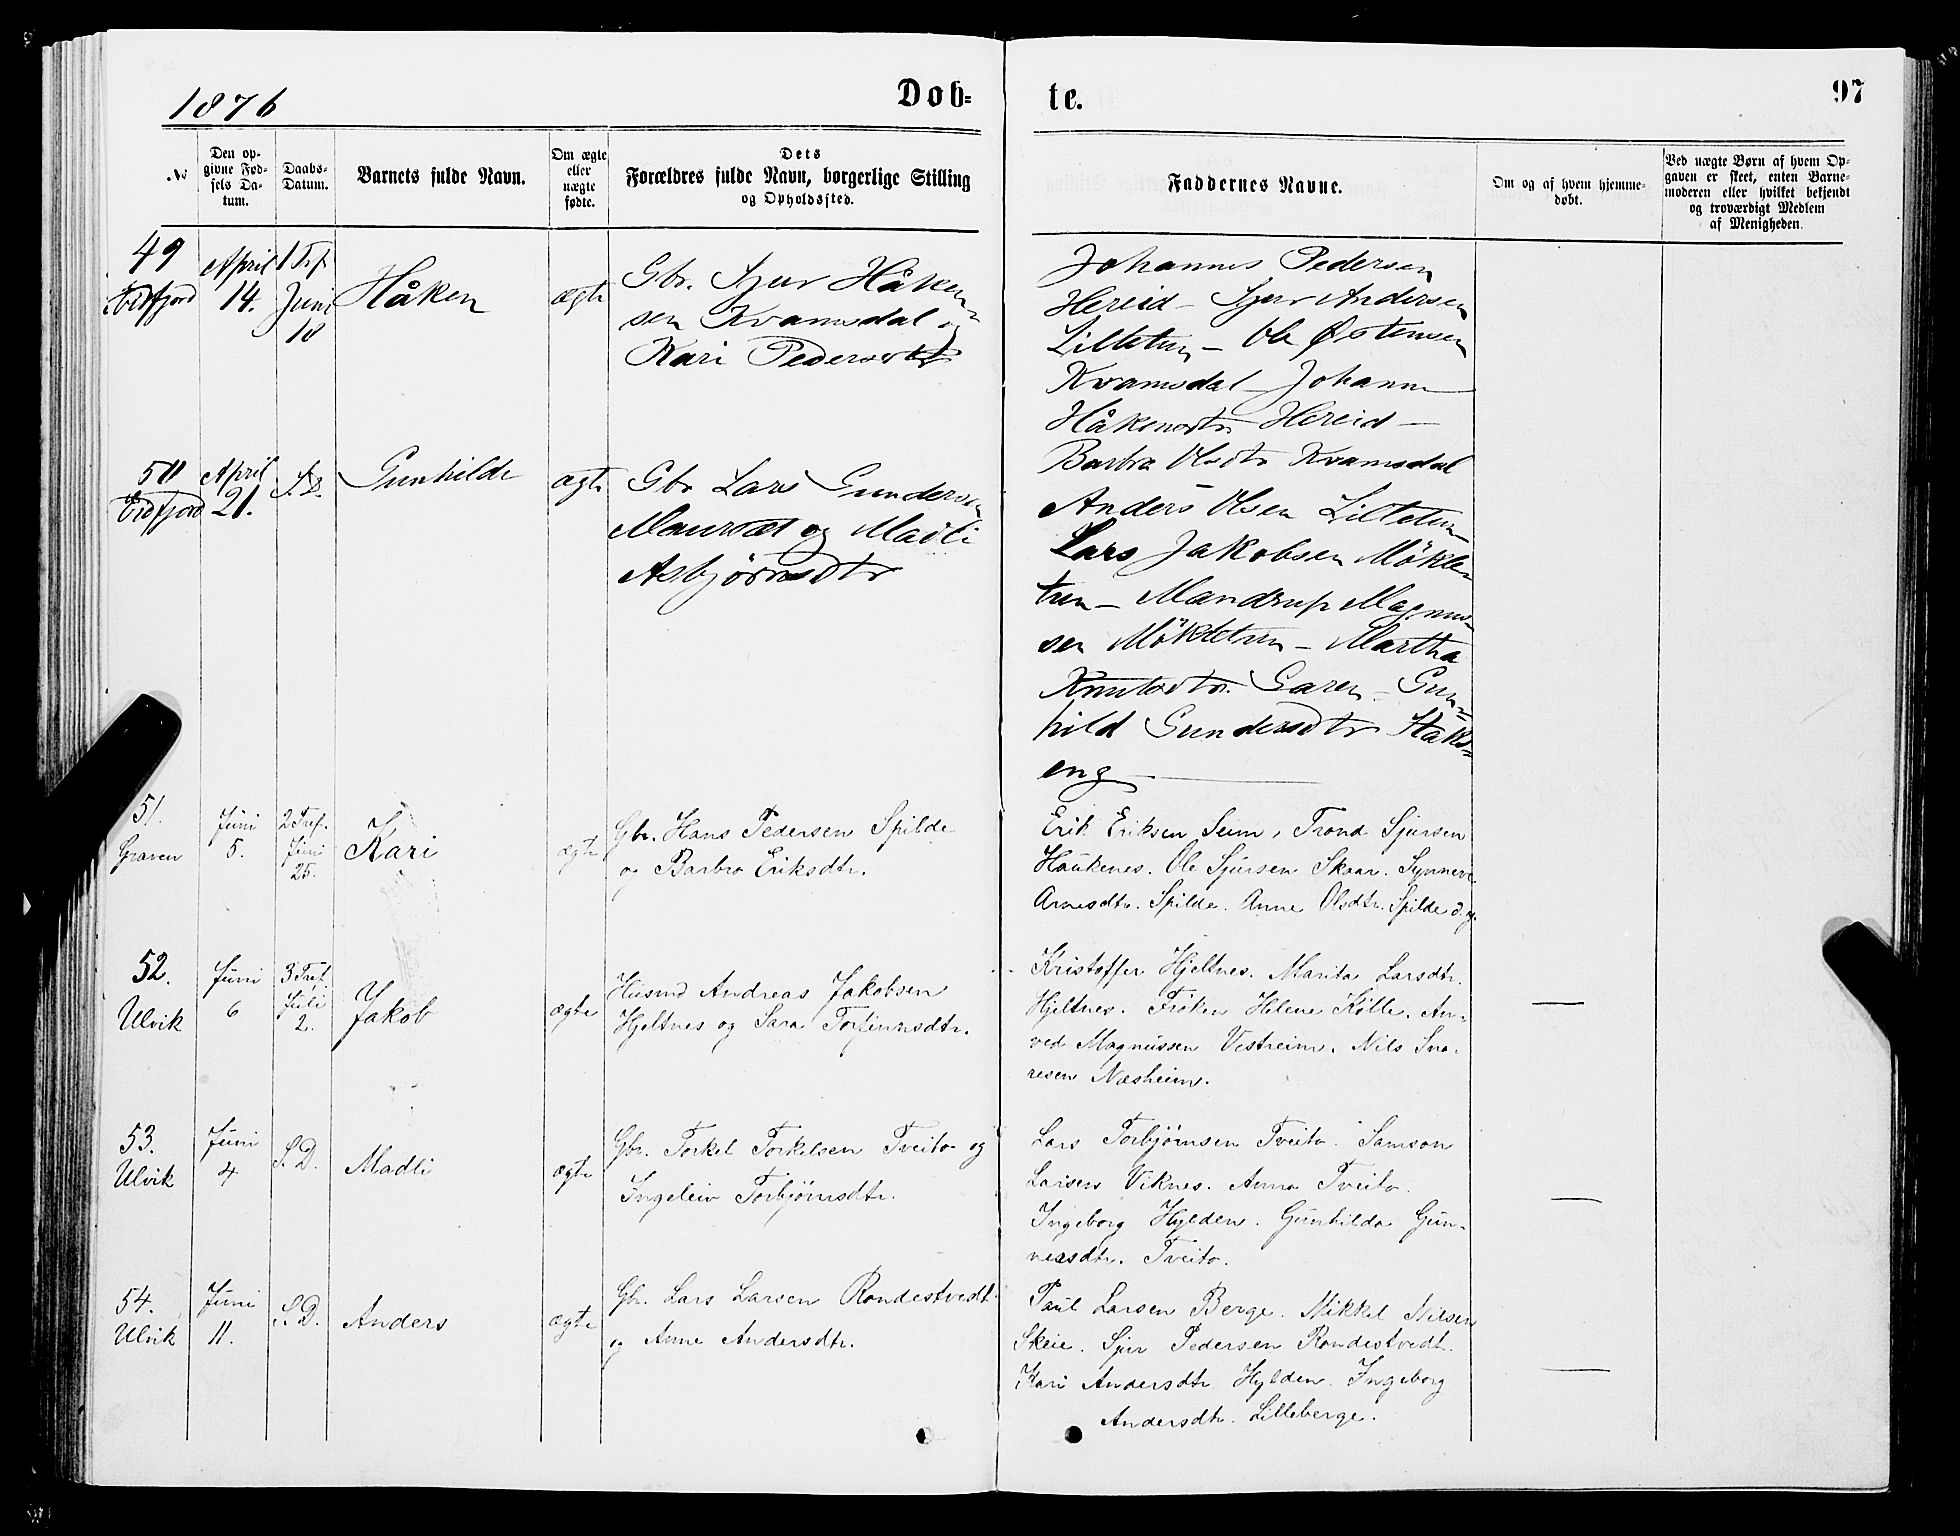 1876
Døb=
te.
97
№
Den op-
givne Fød-
sels Da-
tum.
Daabs-
Datum.
Barnets fulde Navn.
Om ægte
eller
uægte
fødte.
Dets
Forældres fulde Navn, borgerlige Stilling
og Opholdssted.
Faddernes Navne.
Om og af hvem hjemme-
døbt.
Ved uægte Børn af hvem Op-
gaven er skeet, enten Barne-
moderen eller hvilket bekjendt
og troværdigt Medlem
af Menigheden.
49
Eidfjord
April
14.
1 Trf
Juni
18
Håken
ægte
Gbr. Sjur Håken=
sen Kvamsdal og
Kari Pedersdtr
Johannes Pedersen
Hereid - Sjur Andersen
Lilletun - Ole Østensen
Kvamsdal - Johanne
Håkensdtr Hereid -
Barbra Olsdtr Kvamsdal
50
Eidfjord
April
21.
S.D.
Gunhilde
ægte
Gbr Lars Gundersen
Maursæt og Madli
Asbjørnsdtr
Anders Olsen Lilletun
Lars Jakobsen Mökle-
tun - Mandrup Magnus-
sen Mökletun - Martha
Knutsdtr. Garen - Gun=
hild Gundersdtr Håks=
eng
51.
Graven
Juni
5.
2 Tref.
Juni
25.
Kari
ægte
Gbr. Hans Pedersen Spilde
og Barbro Eriksdtr.
Erik Eriksen Seim, Trond Sjursen
Haukenes. Ole Sjursen Skaar. Synneve
Arnesdtr. Spilde. Anne Olsdtr. Spilde d.y.
52.
Ulvik
Juni
6
3 Tref.
Juli
2.
Jakob
ægte
Husmd Andreas Jakobsen
Hjeltnes og Sara Torfinnsdtr.
Kristoffer Hjeltnes. Marita Larsdtr.
Hjeltnes. Frøken Helene Kölle. An-
ved Magnussen Vestreim. Nils Sna-
resen Næsheim.
53.
Ulvik
Juni
4
S.D.
Madli
ægte
Gbr. Torkel Torkelsen Tveito og
Ingeleiv Torbjørnsdtr.
Lars Torbjørnsen Tveito. Samson
Larsen Viknes. Anna Tveito.
Ingeborg Hylden. Gunhilda Gun-
nersdtr. Tveito.
54.
Ulvik
Juni
11.
S.D.
Anders
ægte
Gbr. Lars Larsen Rondestvedt
og Anne Andersdtr.
Paul Larsen Berge. Mikkel Nilsen
Skeie. Sjur Pedersen Rondestvedt.
Kari Andersdtr Hylden. Ingeborg
Andersdtr. Lilleberge.